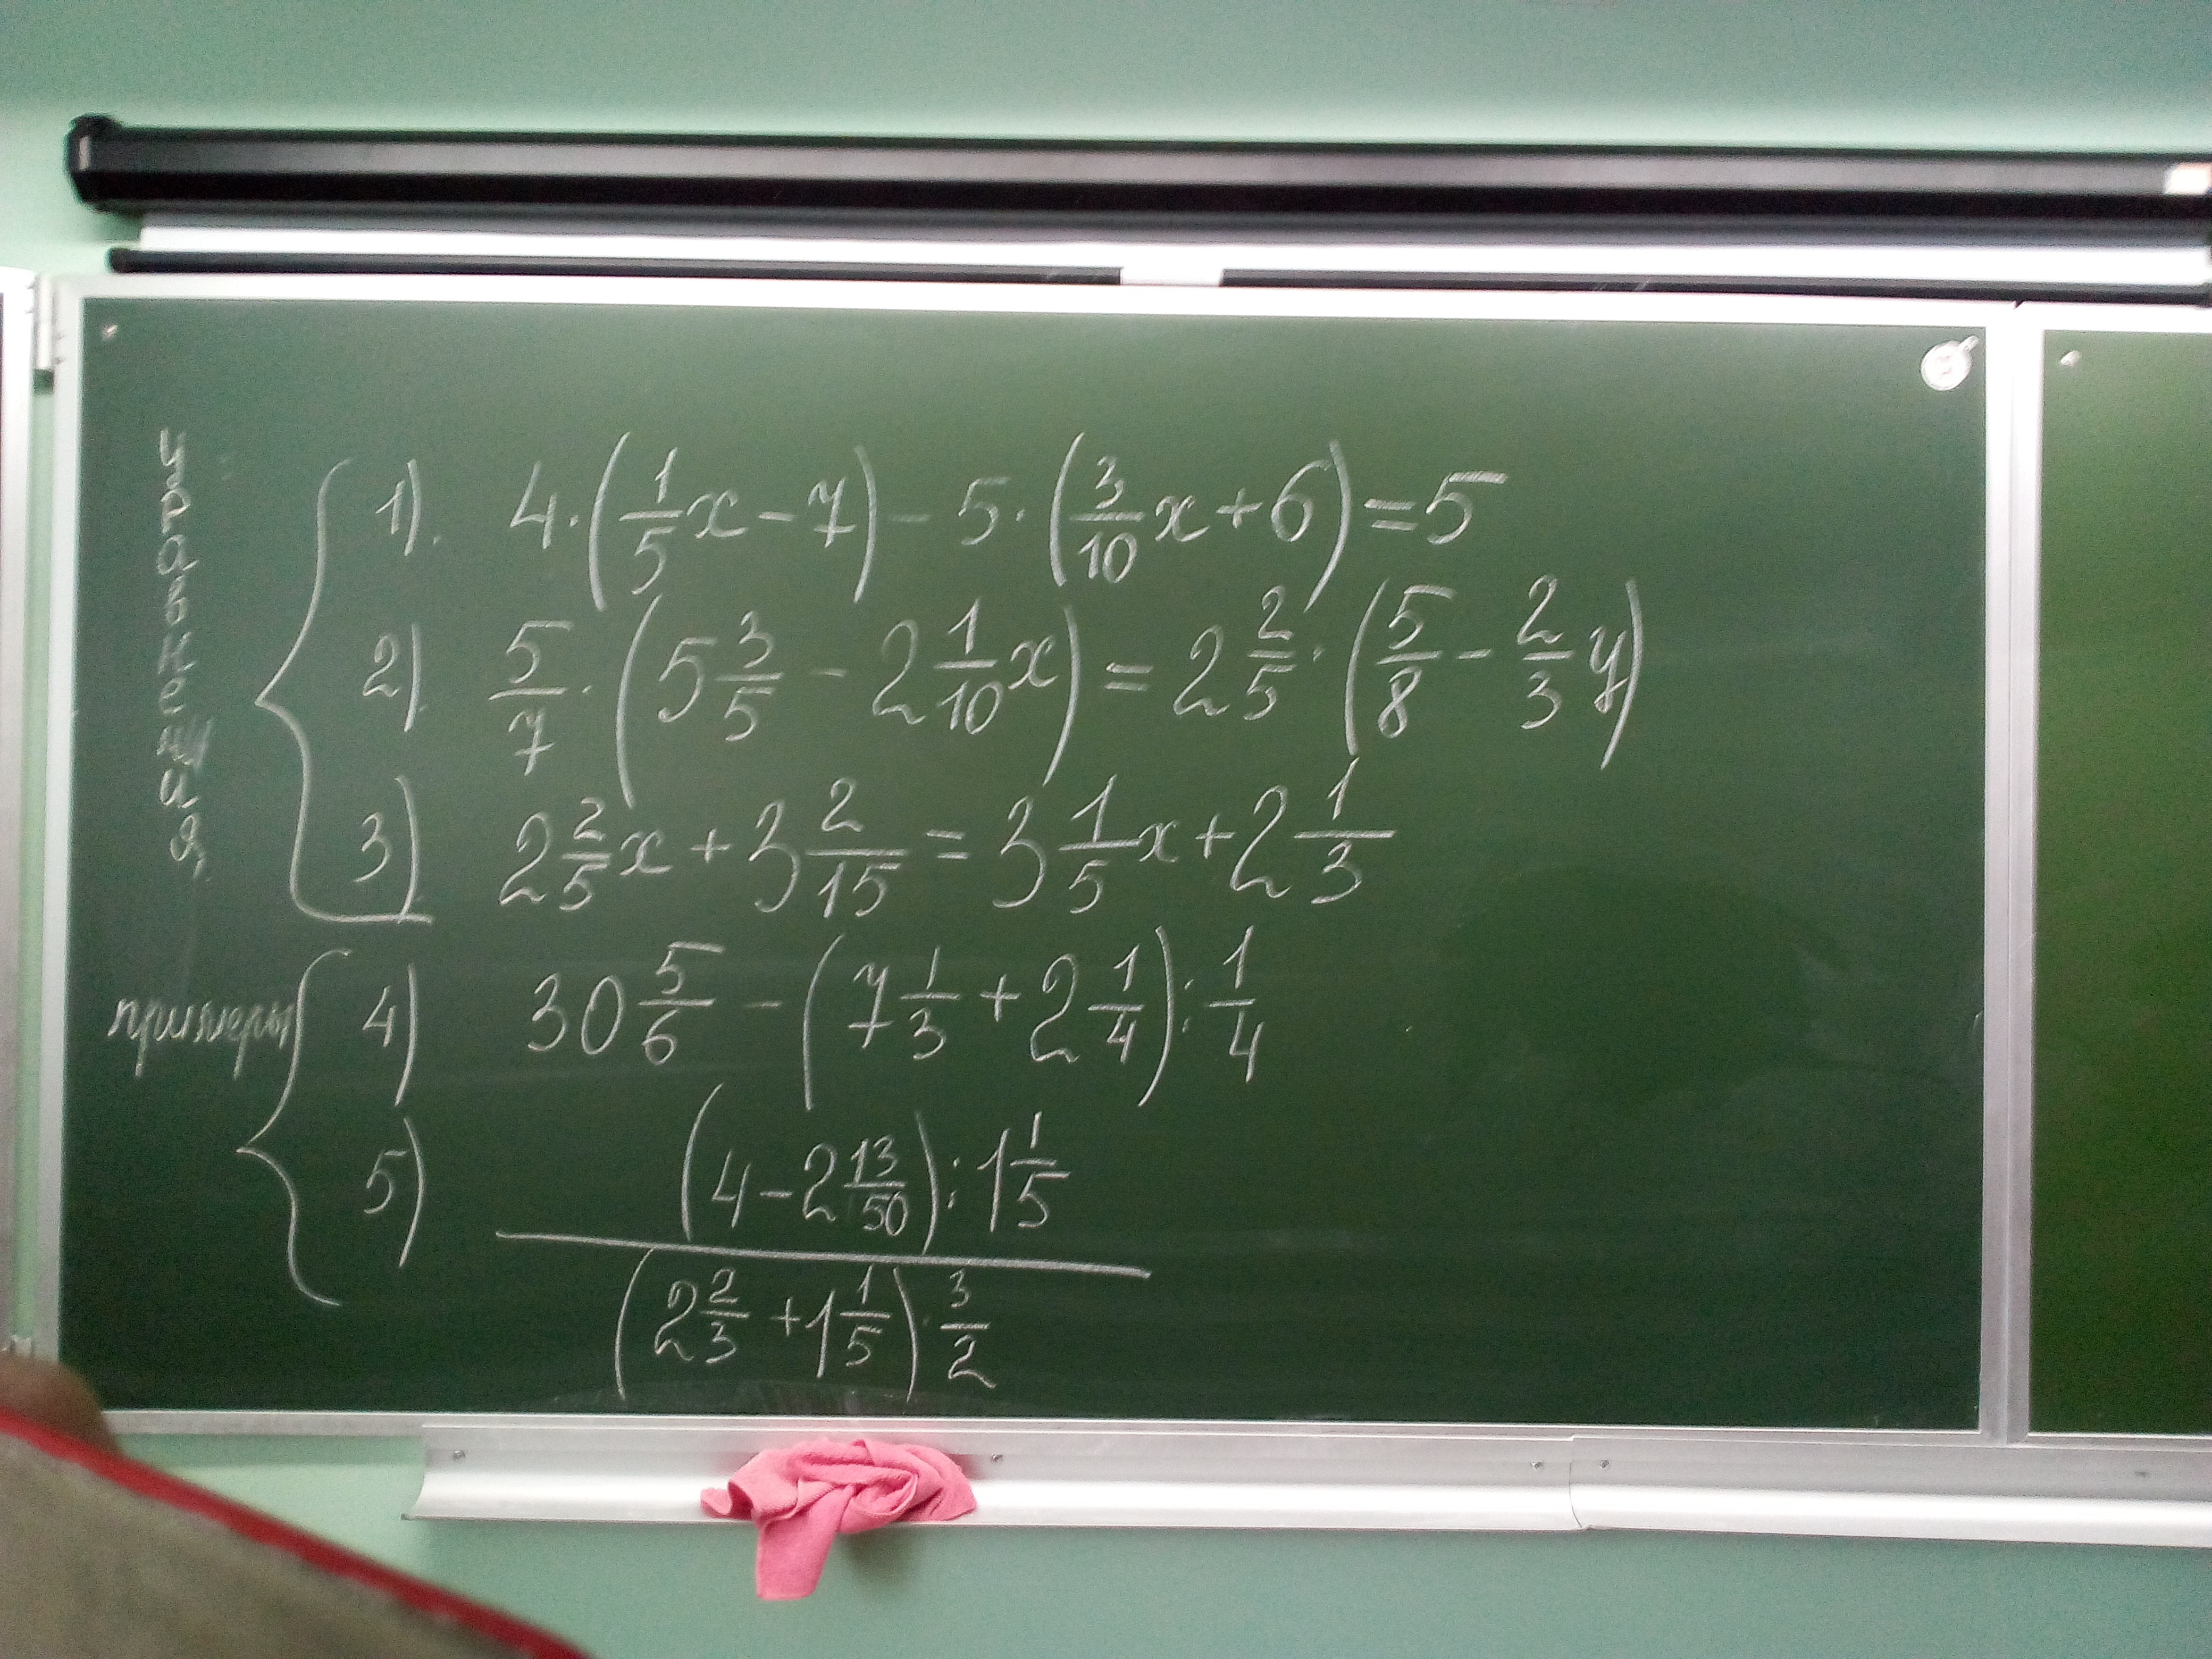 уравнения
1). 4·(1/5 x − 7) − 5·(3/10 x + 6) = 5
2). 5/7·(5 3/5 − 2 1/10 x) = 2 2/5·(5/8 − 2/3 y)
3). 2 2/5 x + 3 2/15 = 3 1/5 x + 2 1/3
примеры
4) 30 5/6 − (7 1/3 + 2 1/4) : 1/4
5) (4 − 2 13/50) : 1 1/5
(2 2/3 + 1 1/5)·3/2